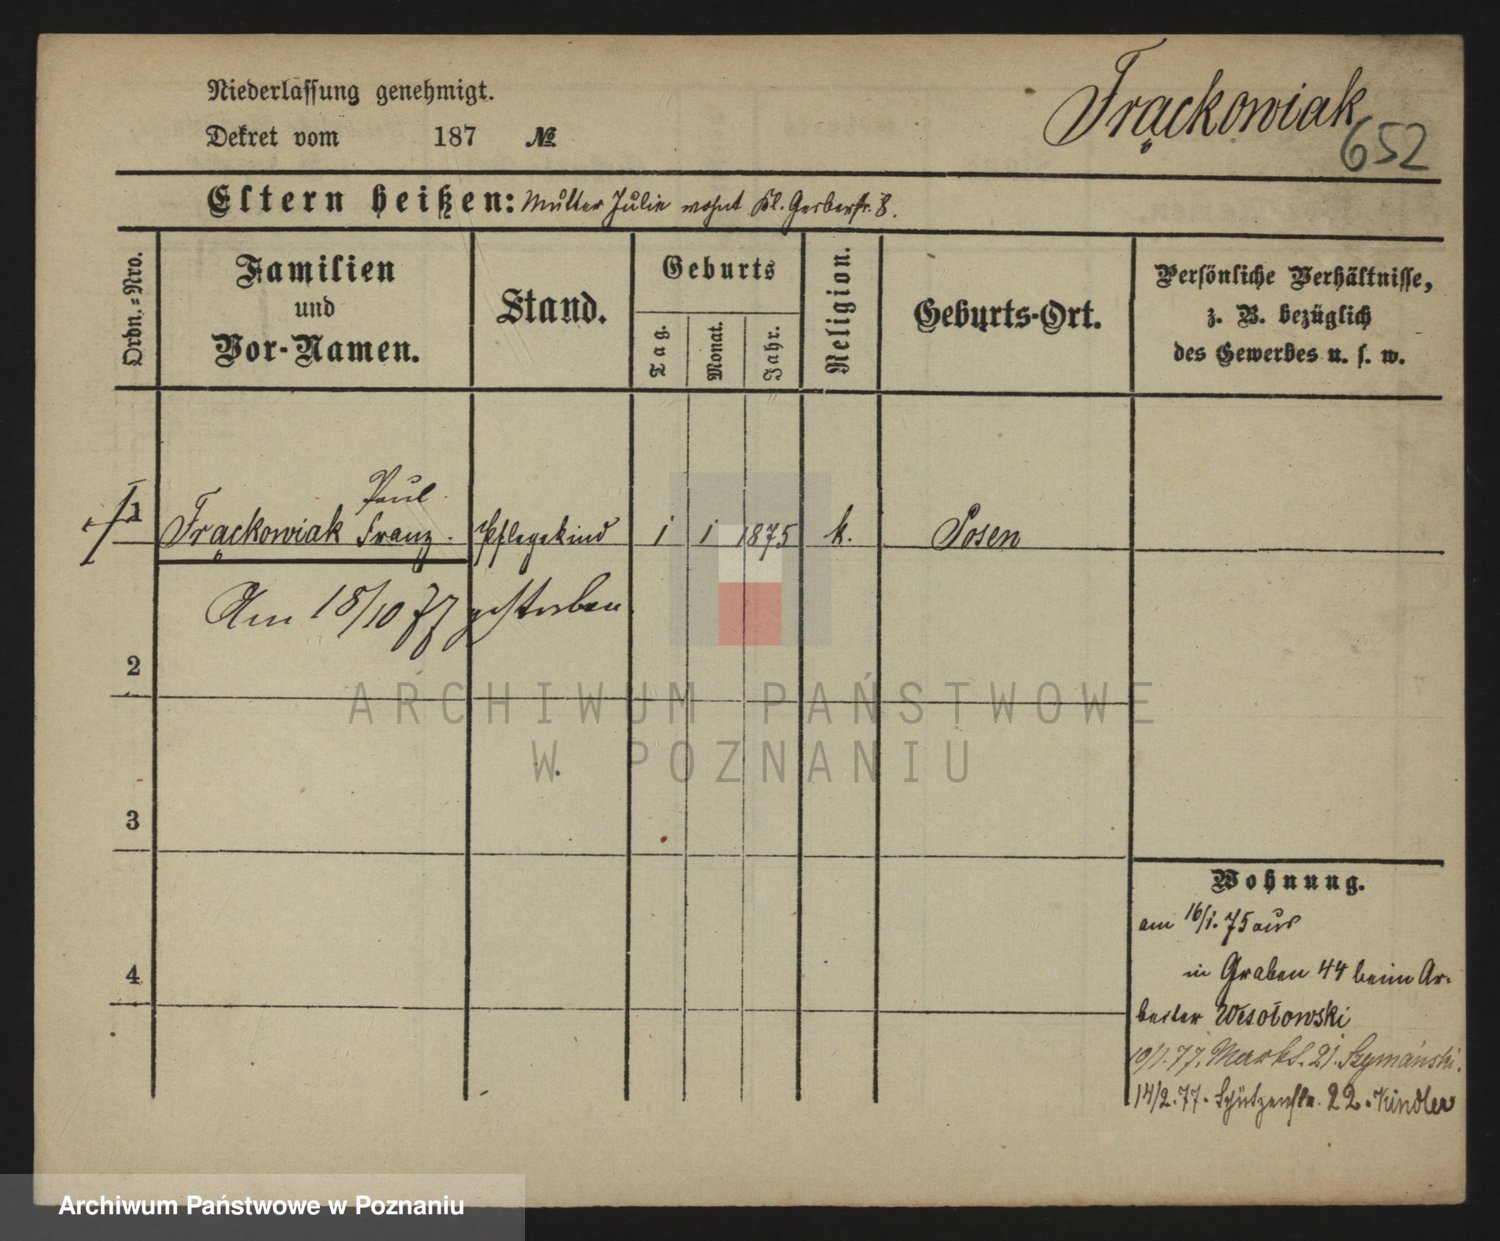 Niederlassung genehmigt.
Frąckowiak
Dekret vom 187 №
652
Eltern heißen: Mutter Julie wohnt Kl. Gerberstr. 8.
Ordn.=Nro.
Familien
und
Vor-Namen.
Stand.
Geburts
Tag.
Monat.
Jahr.
Religion.
Geburts-Ort.
Persönliche Verhältnisse,
z. B. bezüglich
des Gewerbes u. s. w.
Paul
1 Frąckowiak Franz. Pflegekind 1 1 1875 k. Posen
Am 18/10 77 gestorben.
2
ARCHIWUM PAŃSTWOWE
W POZNANIU
3
Wohnung.
am 16/1. 75 aus
4
in Graben 44 beim Ar-
beiter Wesołowski
19/1. 77. Markt. 21. Szymański.
14/2. 77. Schützenstr. 22. Kindler
Archiwum Państwowe w Poznaniu